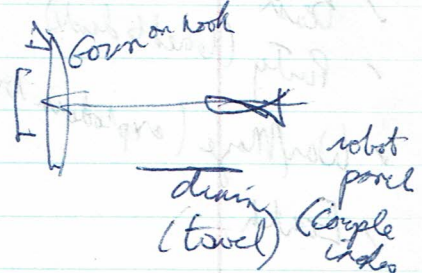 Gown on hook
drain
(towel)
robot
panel
(couple
inches